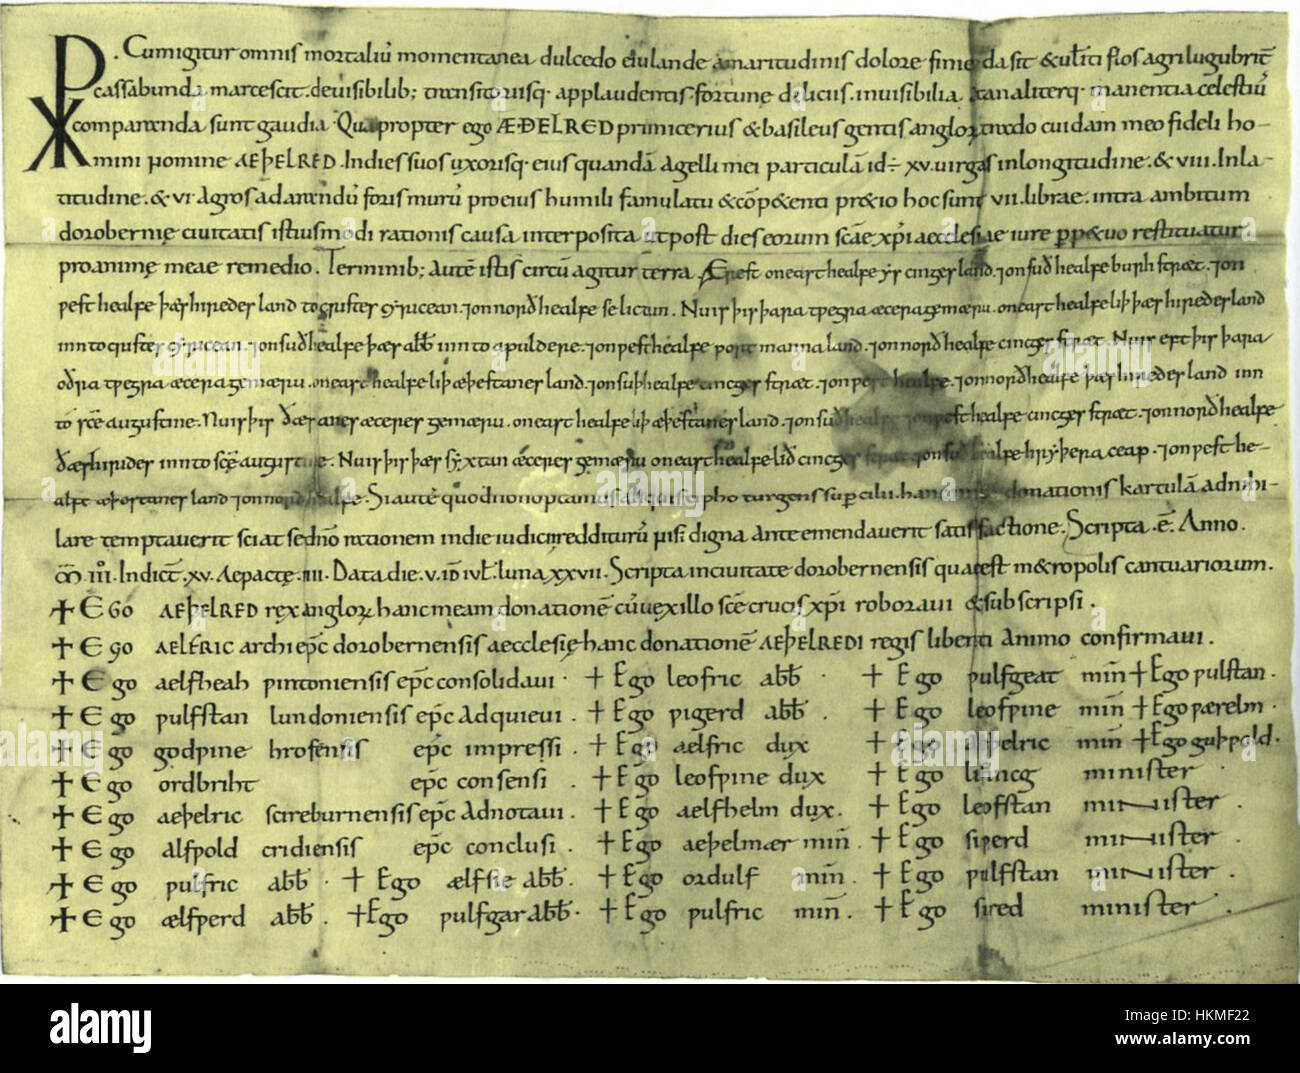 . Cum igitur omnis mortaliū momentanea dulcedo eiulande amaritudinis dolore finienda sit & ułti flos agri lugubrit̄
cassabunda marcescit. de uisibilib; transitoriisq· applaudentis fortunę deliciis. inuisibilia manentia celestiū
comparanda sunt gaudia. Quapropter ego ÆÐELRED primicerius & basileus gentis anglorꝝ trado cuidam meo fideli ho-
mini nomine AEÞELRED. In dies suos uxorisq· eius quandā agelli mei particulā id÷ xv. uirgas in longitudine. & viii. In la-
titudine. & vi. Agros ad arandū foris murū pro eius humili famulatu & cōp&enti pr&io hoc sunt vii. librae. intra ambitum
dorobernię ciuitatis istiusmodi rationis causa interposita ut post dies eorum scāe xp̄i aecclesiae iure p̱p&uo restituatur
pro animę meae remedio. Terminib; autē istis circū agitur terra. Ærest on easthealfe ƿyr cinges land. ⁊on suðhealfe burh stræt. ⁊on
ƿest healfe þæs hiredes land to cristes cyricean. ⁊on norðhealfe se lictun. Nu is þis þara tƿegra æcera gemæru. on easthealfe liþ þæs hiredes land
inn to cristes cyricean. ⁊on suðhealfe þæs abƀ inn to apuldere. ⁊on ƿesthealfe port manna land. ⁊on norðhealfe cinges stræt. Nu is eft þis þara
oðra tƿegra æcera gemæru. on easthealfe liþ æþestanes land. ⁊on suþhealfe cinges stræt. ⁊on ƿest healfe. ⁊on norðhealfe þæs hiredes land inn
to sc̄e augustine. Nu is þis ðæs anes æceres gemæru. on easthealfe liþ æþestanes land. ⁊on suðhealfe ⁊on ƿesthealfe cinges stræt. ⁊on norðhealfe
ðæs hiredes inn to sc̄e augustine. Nu is þis þæs syxtan æceres gemæru on easthealfe lið cinges stræt ⁊on suðhealfe hryþera ceap. ⁊on ƿest he-
alfe land ⁊on norðhealfe. Si autē quod non optamus aliquis typho turgens sup̱cilii. hanc donationis kartulā adnihi-
lare temptauerit sciat se dnō rationem in die iudicii redditurū nisi digna ante emendauerit satisfactione. Scripta. ē. Anno.
. m̄. iii. Indict̄. xv. Aepactę. iiii. Data die. v. id̄ iuł. luna xxvii. Scripta in ciuitate dorobernensis quae est m&ropolis cantuariorum.
✝ EGO AEÞELRED rex anglorꝝ hanc meam donationē cū uexillo sc̄e crucis xp̄i roboraui & subscripsi.
✝ Ego AELFRIC archiep̄c dorobernensis aecclesię hanc donationē AEÞELREDI regis libenti Animo confirmaui.
✝ Ego aelfheah ƿintoniensis ep̄c consolidaui. ✝ Ego leofric abƀ. ✝ Ego ƿulfgeat min̄ ✝ Ego ƿulfstan.
✝ Ego ƿulfstan lundoniensis ep̄c Adquieui. ✝ Ego ƿigerd abƀ. ✝ Ego leofƿine min̄ ✝ Ego ƿærelm.
✝ Ego godƿine hrofensis ep̄c impressi. ✝ Ego aelfric dux ✝ Ego aeþelric min̄ ✝ Ego guþƿold.
✝ Ego ordbriht ep̄c consensi. ✝ Ego leofƿine dux ✝ Ego lifincg minister.
✝ Ego aeþelric scireburnensis ep̄c Adnotaui. ✝ Ego aelfhelm dux. ✝ Ego leofstan minister.
✝ Ego alfƿold cridiensis ep̄c conclusi. ✝ Ego aeþelmær min̄. ✝ Ego siƿerd minister.
✝ Ego ƿulfric abƀ. ✝ Ego ælfsie abƀ. ✝ Ego ordulf min̄. ✝ Ego ƿulfstan minister.
✝ Ego ælfƿerd abƀ. ✝ Ego ƿulfgar abƀ. ✝ Ego ƿulfric min̄. ✝ Ego sired minister.
alamy
Image ID: HKMF22
www.alamy.com